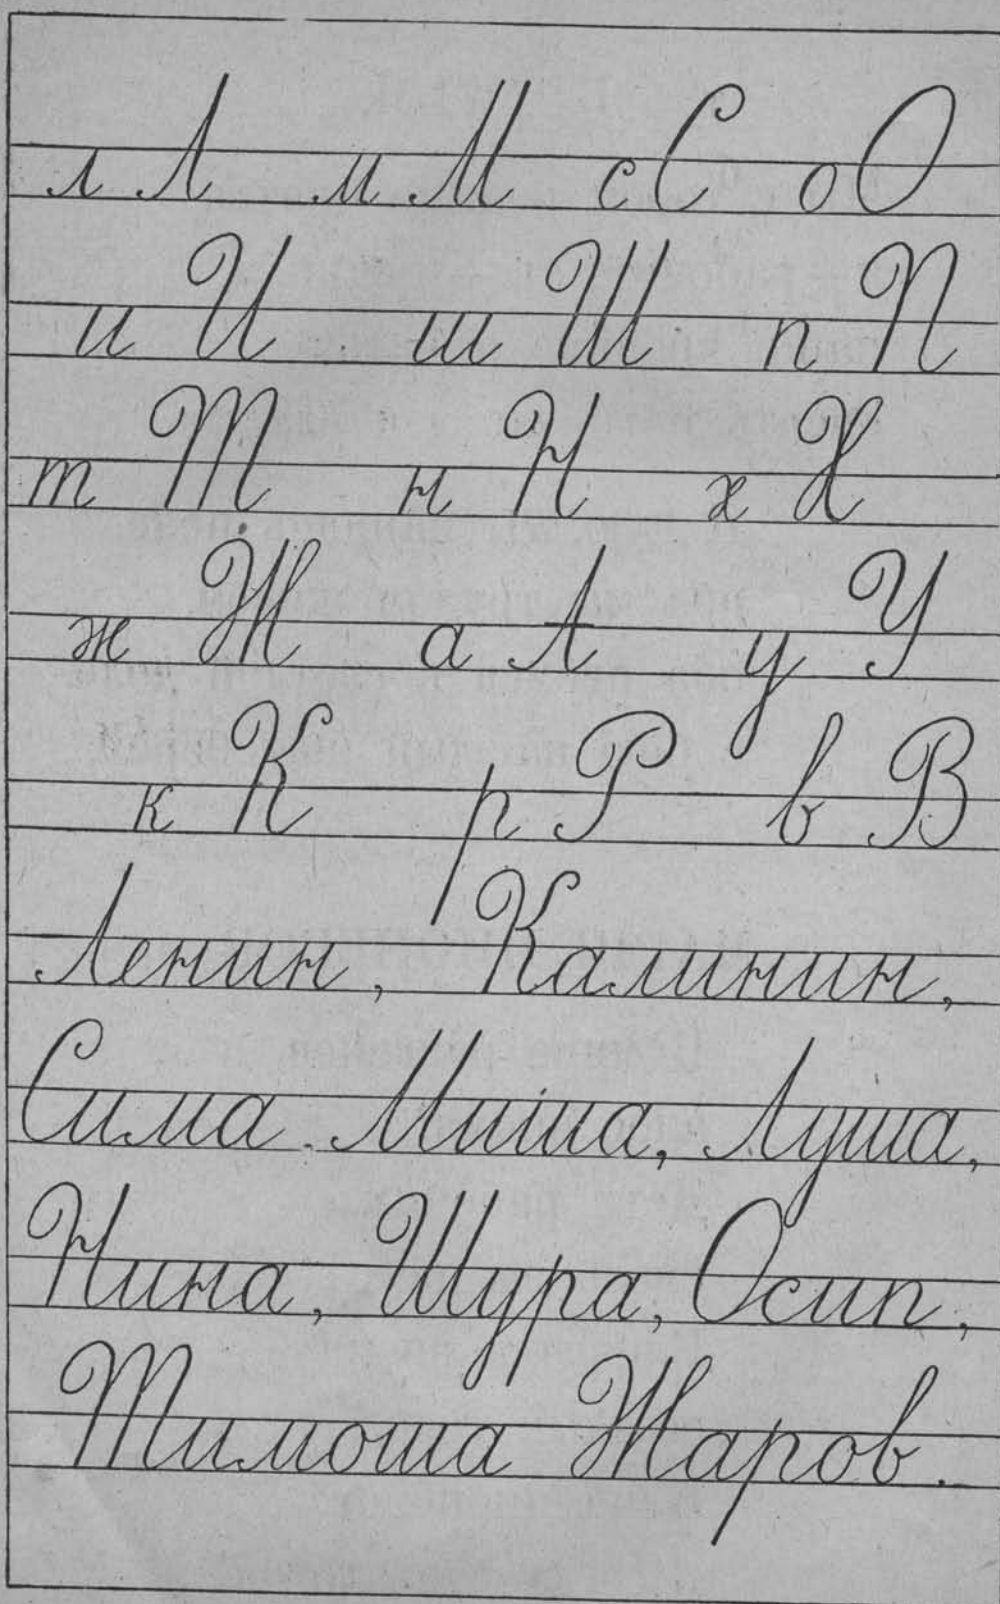 л Л м М с С о О
и И ш Ш п П
т Т н Н х Х
ж Ж а А у У
к К р Р в В
Ленин, Калинин,
Сима. Миша, Луша,
Нина, Шура, Осип,
Тимоша Жаров.